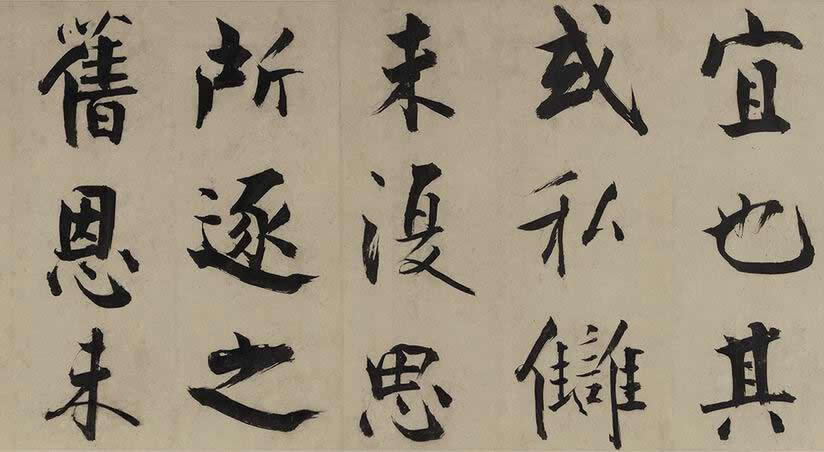 宜也其
或私讎
未復思
所逐之
舊恩未